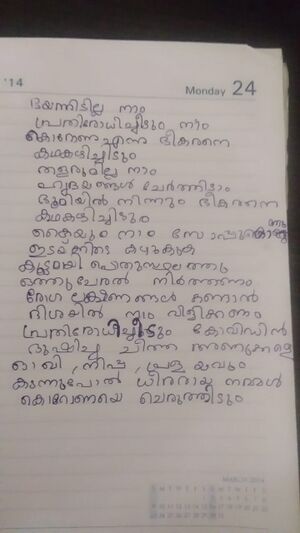 '14
Monday 24
ഭയന്നിടില്ല നാം
പ്രതിരോധിച്ചീടും നാം
കൊറോണ എന്ന ഭീകരനെ
കഥകഴിച്ചിടും
തളരുമില്ല നാം
ഹൃദയങ്ങൾ ചേർത്തിടാം
ഭൂമിയിൽ നിന്നും ഭീകരനെ
കഥകഴിച്ചിടും
കൈയും നാം സോപ്പു കൊണ്ടു
ഇടയ്ക്കിടെ കഴുകുക
കൂട്ടമായി പൊതുസ്ഥലത്തു
ഒത്തുചേരൽ നിർത്തണം
രോഗ ലക്ഷണങ്ങൾ കണ്ടാൽ
ദിശയിൽ നാം വിളിക്കണം
പ്രതിരോധിച്ചീടും കോവിഡിൻ
ദുഷിച്ച ചീത്ത അണുക്കളെ
ഓഖി, നിപ്പ, പ്രളയവും
കടന്നുപോൽ ധീരരായ നമ്മൾ
കൊറോണയെ ചെറുത്തിടും
MARCH 2014